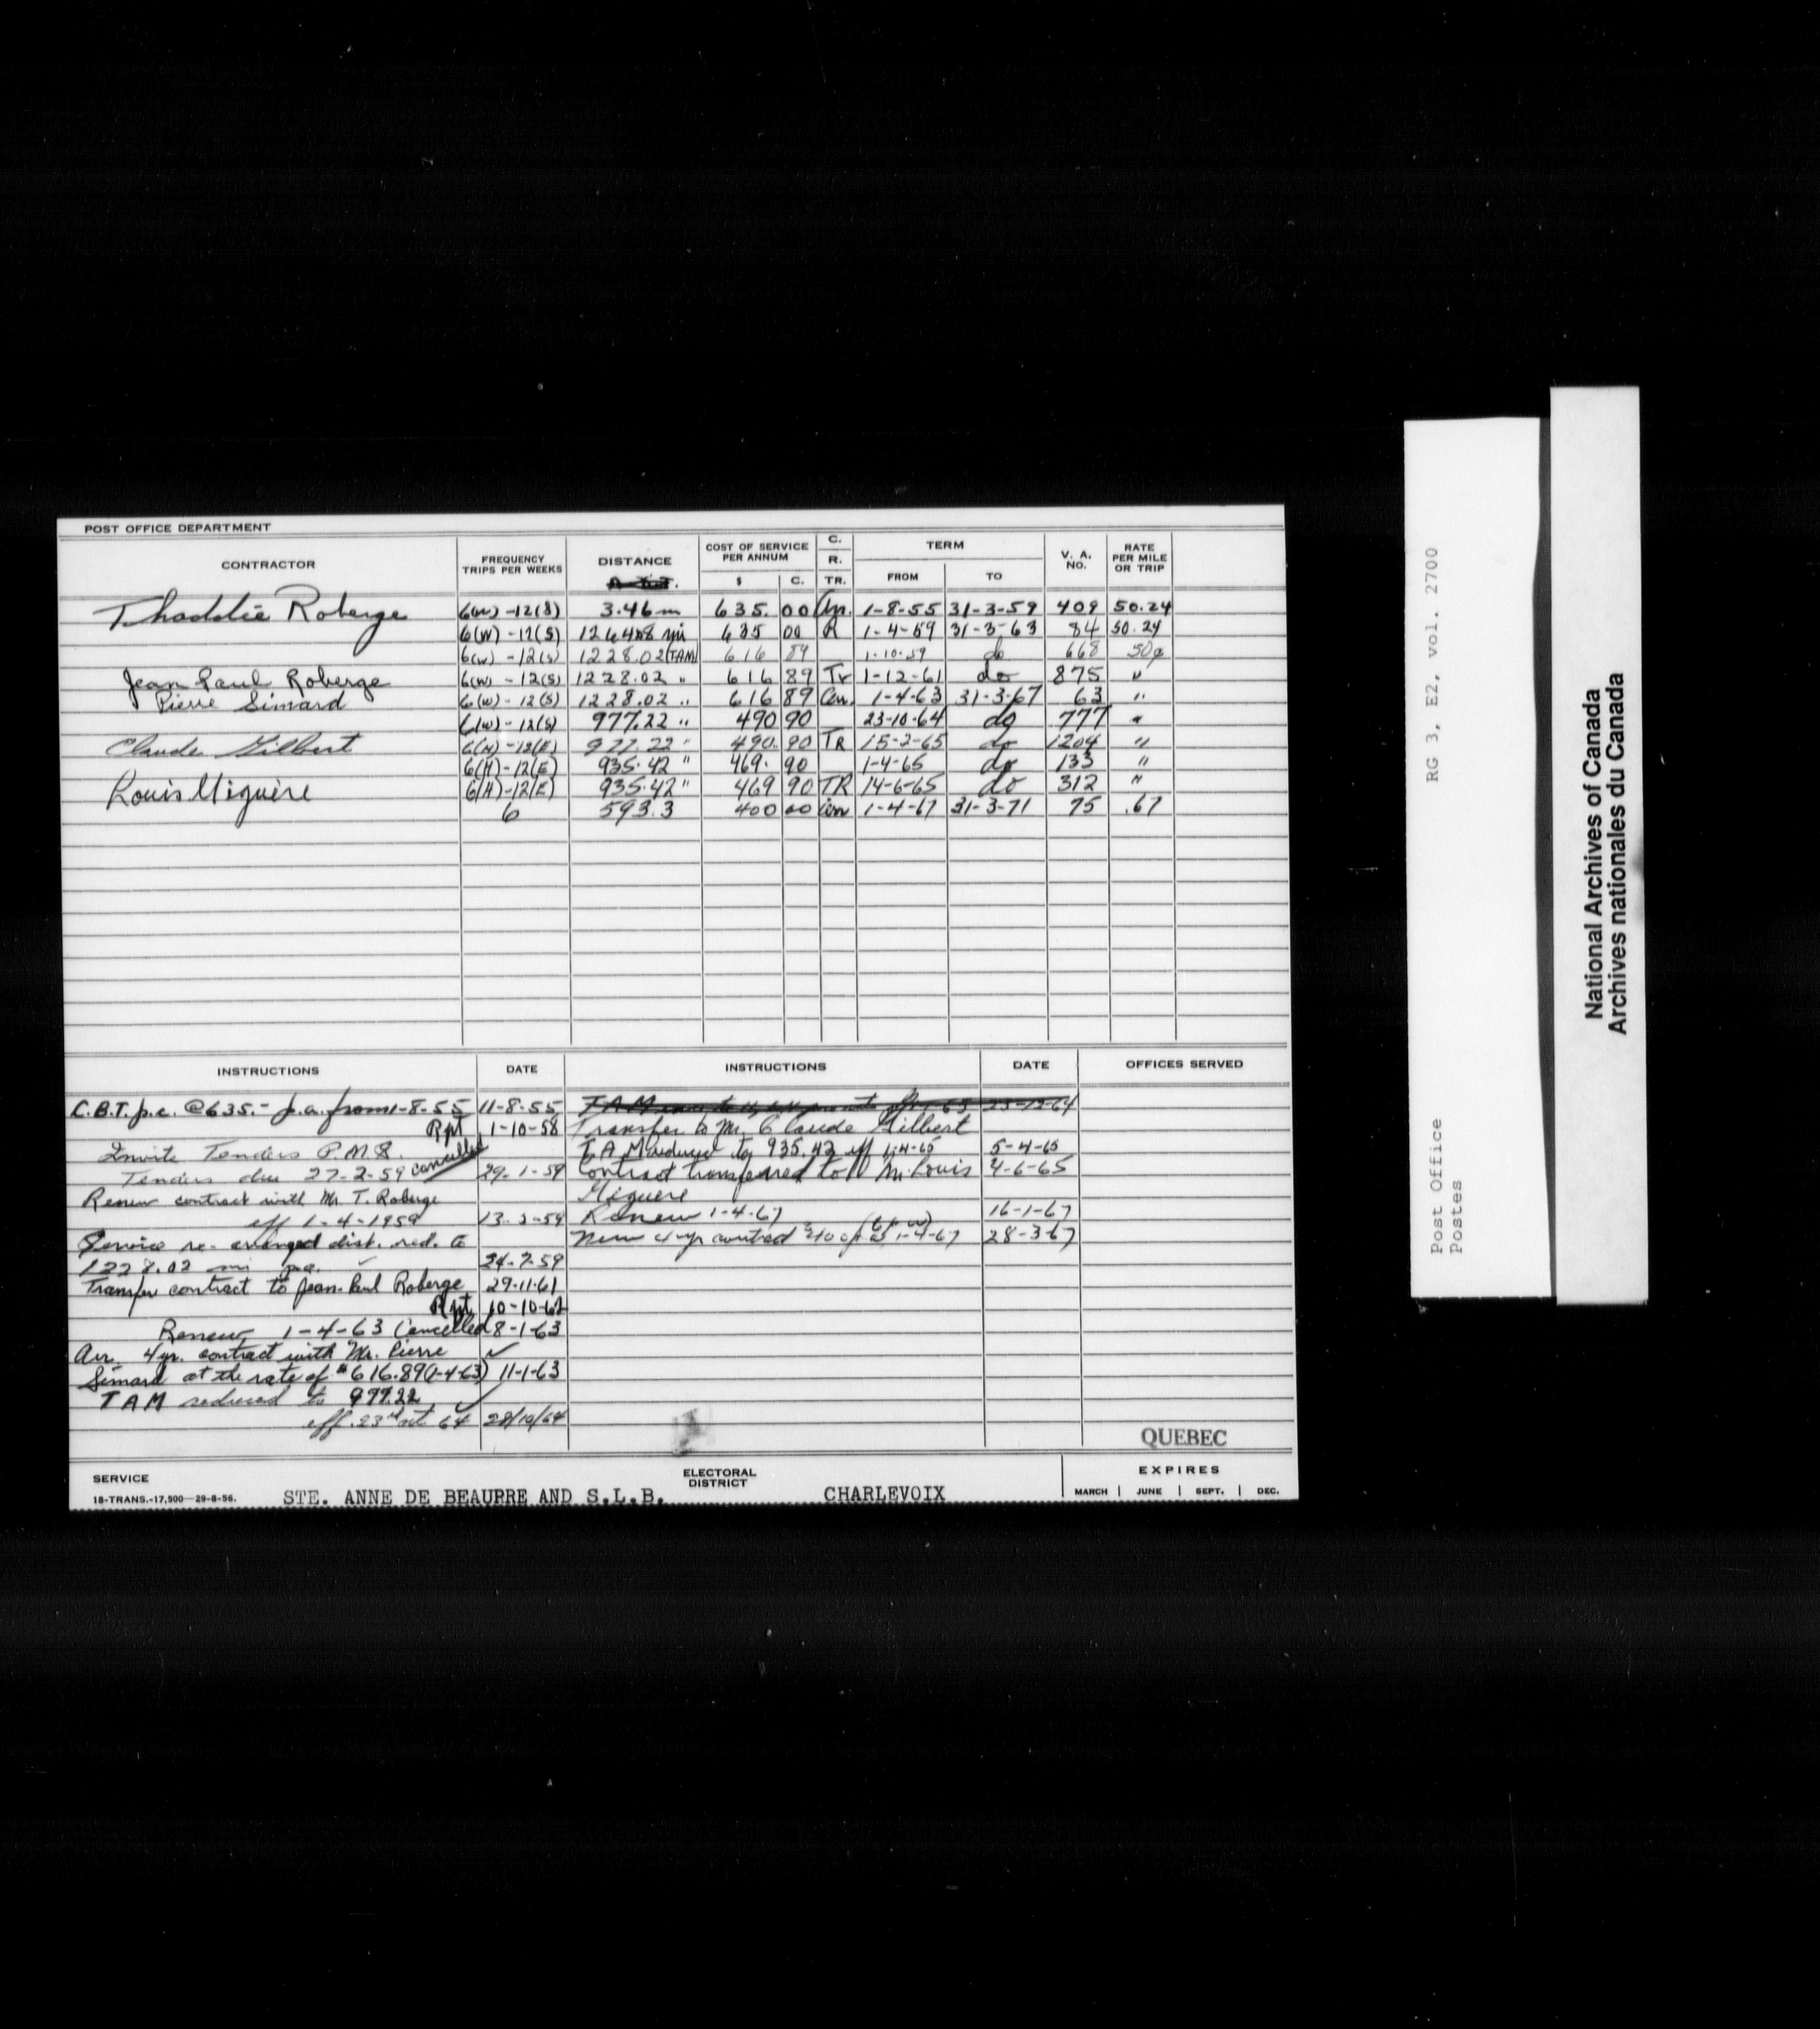 POST OFFICE DEPARTMENT
CONTRACTOR FREQUENCY TRIPS PER WEEKS DISTANCE COST OF SERVICE PER ANNUM $ C. C. R. TR. TERM FROM TO V. A. NO. RATE PER MILE OR TRIP
Thaddée Roberge 6(W)-12(S) 3.46 m 635. 00 1-8-55 31-3-59 409 50.24
6(W)-12(S) 635 00 R 1-4-59 31-3-63 84 50.24
6(W)-12(S) 1228.02(TAM) 616 89 1-10-59 do 668 50¢
Jean Paul Roberge 6(W)-12(S) 1228.02 " 616 89 Tr 1-12-61 do 875 "
Pierre Simard 6(W)-12(S) 1228.02 " 616 89 Con. 1-4-63 31-3-67 63 "
6(W)-12(S) 977.22 " 490 90 23-10-64 do 777 "
Claude Gilbert 6(H)-12(E) 977.22 " 490. 90 TR 15-2-65 do 1204 "
6(H)-12(E) 935.42 " 469. 90 1-4-65 do 133 "
Louis Giguère 6(H)-12(E) 935.42 " 469 90 TR 14-6-65 do 312 "
6 593.3 400 00 con 1-4-67 31-3-71 75 .67
INSTRUCTIONS DATE INSTRUCTIONS DATE OFFICES SERVED
C.B.T. p.c. @ 635.- p.a. from 1-8-55 11-8-55
Rpt 1-10-58
Invite Tenders P.M.S.
Tenders due 27-2-59 cancelled 29-1-59
Renew contract with Mr. T. Roberge
eff 1-4-1959 13-2-59
Service re-arranged dist. red. to
1228.02 mi pa. 24-7-59
Transfer contract to Jean-Paul Roberge 29-11-61
Rpt 10-10-62
Renew 1-4-63 Cancelled 8-1-63
4yr. contract with Mr. Pierre
Simard at the rate of $616.89(1-4-63) 11-1-63
TAM reduced to 977.22
eff. 23rd oct 64 28/10/64
Transfer to Mr. Claude Gilbert
TAM reduced to 935.42 eff 1-4-65 5-4-65
Contract transferred to Mr. Louis 4-6-65
Giguere
Renew 1-4-67 16-1-67
New 4 yr contract 1-4-67 28-3-67
QUEBEC
SERVICE STE. ANNE DE BEAUPRE AND S.L.B. ELECTORAL DISTRICT CHARLEVOIX EXPIRES
18-TRANS.-17,500—29-8-56. MARCH | JUNE | SEPT. | DEC.
RG 3, E2, vol. 2700
Post Office
Postes
National Archives of Canada
Archives nationales du Canada